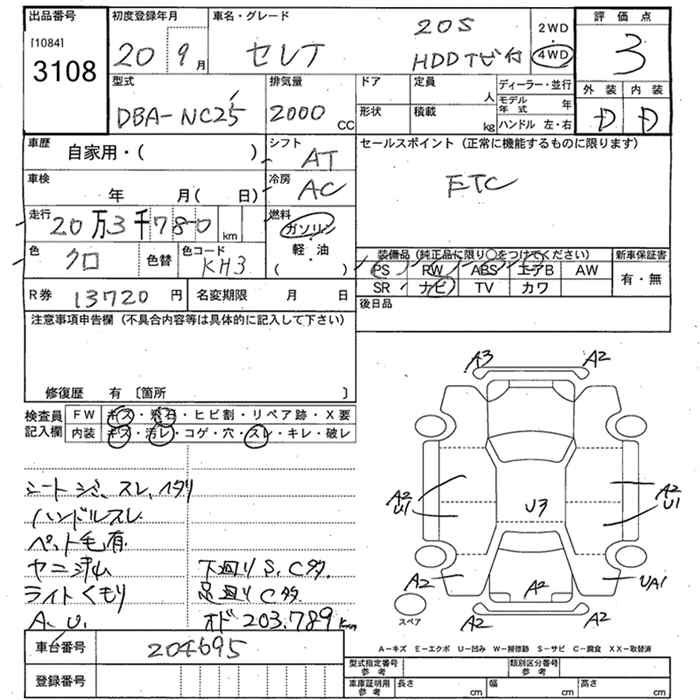 出品番号 初度登録年月 車名・グレード 20S 2WD 評価点
[1084] 3108 20 9月 セレナ HDDナビ付 4WD 3
型式 排気量 ドア 定員 人 ディーラー・並行 外装 内装
DBA-NC25 2000 CC 形状 積載 kg モデル年式 年 D D
ハンドル 左・右
車歴 自家用・( ) シフト AT セールスポイント (正常に機能するものに限ります)
車検 年 月( 日) 冷房 AC ETC
走行 20万3千780 km 燃料 ガソリン
軽・油
( )
色 クロ 色替 色コード KH3
装備品 (純正品に限り○をつけてください) 新車保証書
PS RW ABS エアB AW 有・無
SR ナビ TV カワ
R券 13720円 名変期限 月 日 後日品
注意事項申告欄 (不具合内容等は具体的に記入して下さい)
修復歴 有 〔箇所 〕
検査員 FW キズ・飛石・ヒビ割・リペア跡・X要
記入欄 内装 キズ・汚レ・コゲ・穴・スレ・キレ・破レ
シートシミ、スレ、ヘタリ
ハンドルスレ
ペット毛有
ヤニ汚れ 下廻りS、C多。
ライトくもり 足廻りC多
A、U. オド203,789km
A3 A2
A2 U1 U3 A2 U1
A2 A2 UA1
スペア A2 A2
A-キズ E-エクボ U-凹み W-補修跡 S-サビ C-腐食 XX-取替済
車台番号 204695
登録番号
型式指定番号 参考 類別区分番号 参考
車庫証明用 参考 長さ cm 幅 cm 高さ cm